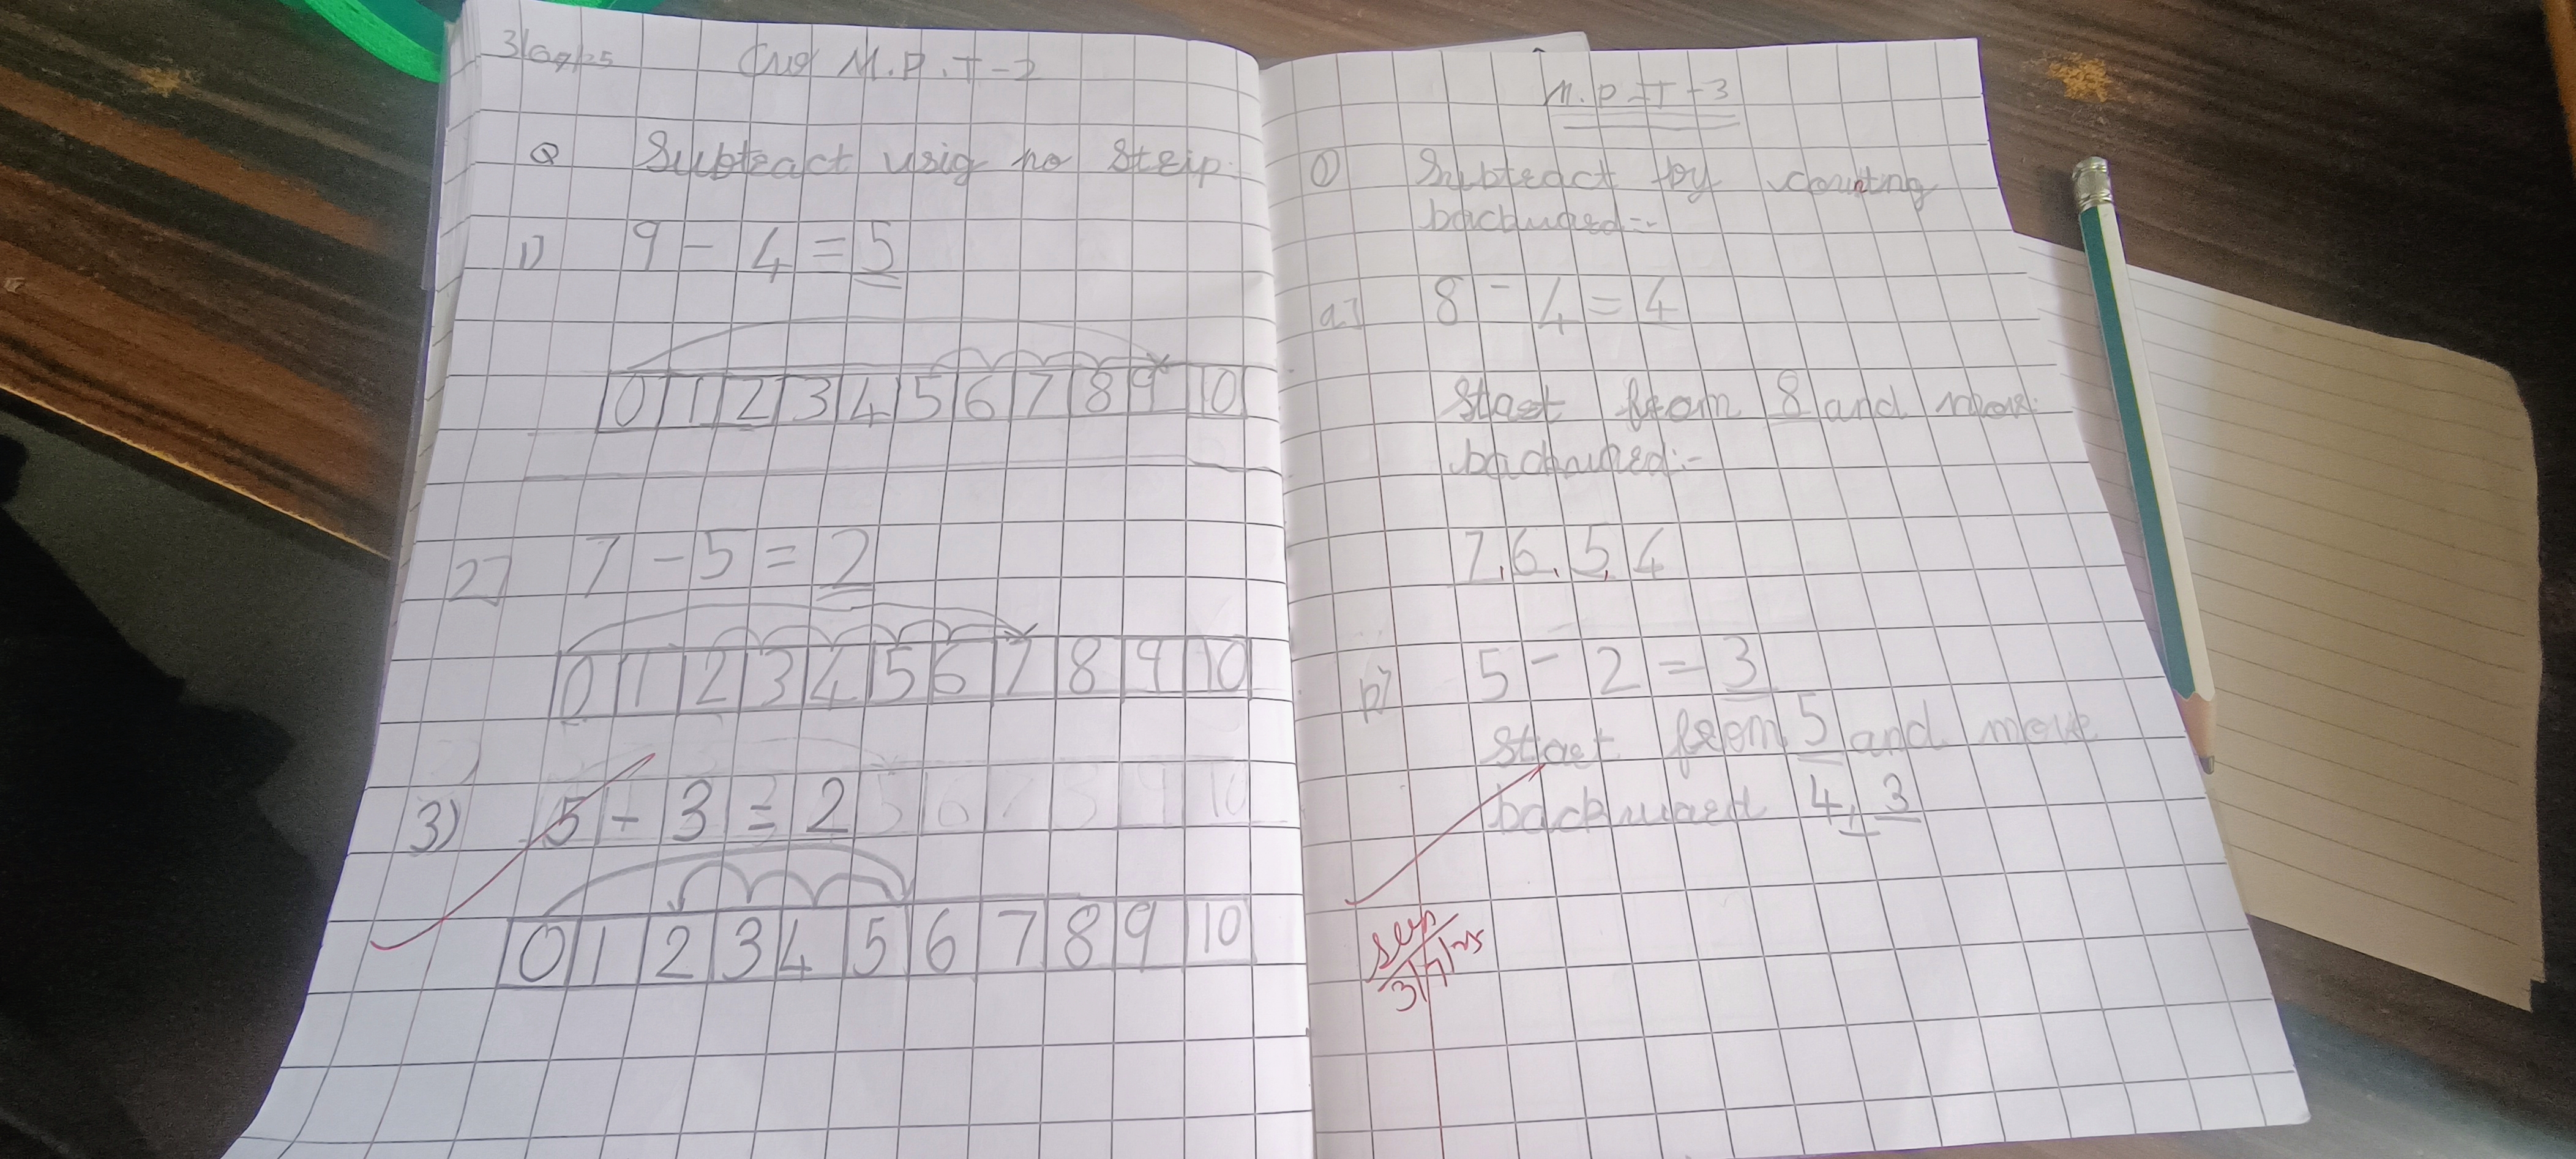 3/07/25
M.P.T-2
Q Subtract usig no Strip:
1) 9 - 4 = 5
0 1 2 3 4 5 6 7 8 9 10
2] 7 - 5 = 2
0 1 2 3 4 5 6 7 8 9 10
3) 5 - 3 = 2
0 1 2 3 4 5 6 7 8 9 10
M.P.T-3
① Subtract by counting
backward:-
a] 8 - 4 = 4
Start from 8 and move
backward:-
7, 6, 5, 4
b] 5 - 2 = 3
start from 5 and move
backward 4, 3
3/7/25